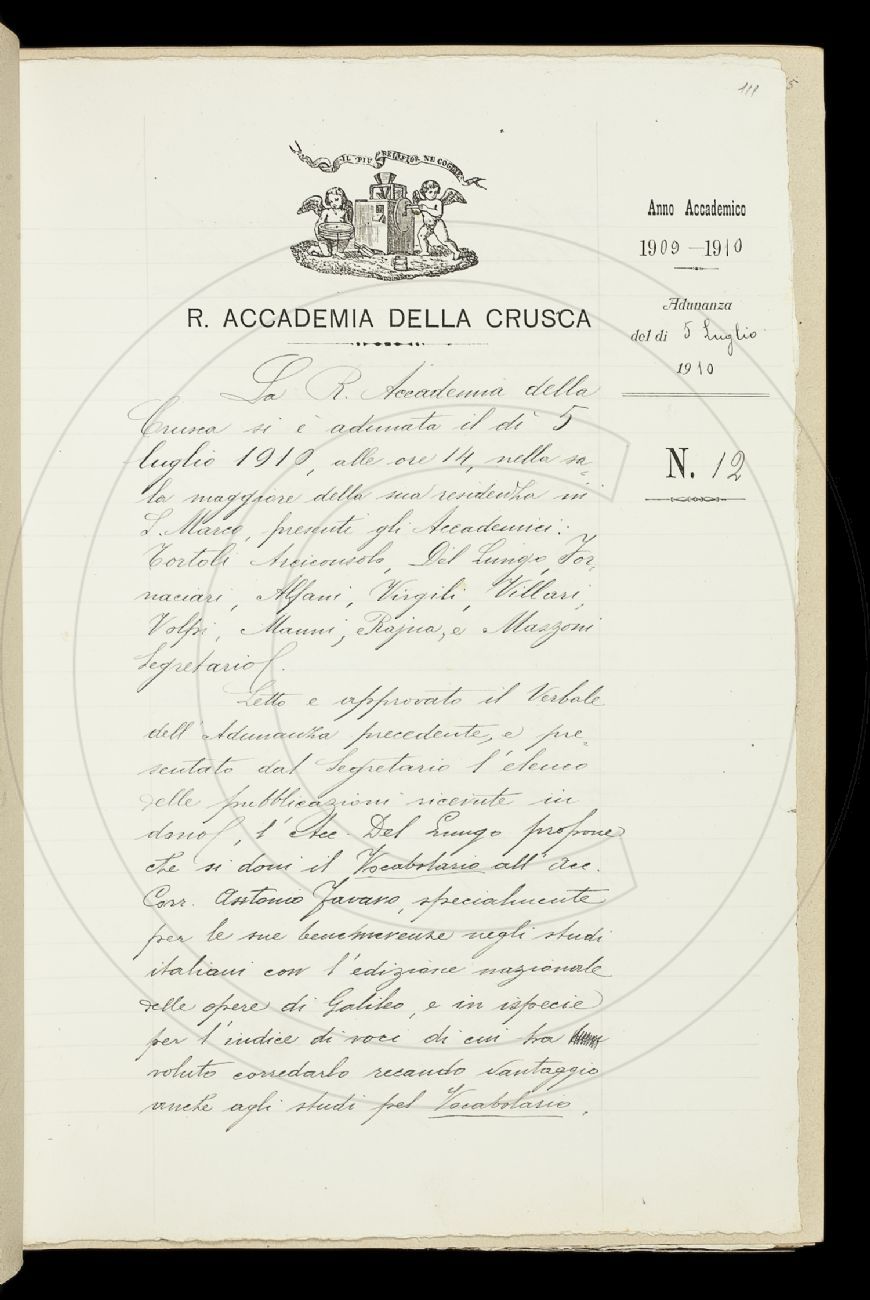 111
IL PIÙ BEL FIOR NE COGLIE
R. ACCADEMIA DELLA CRUSCA
Anno Accademico
1909 - 1910
Adunanza
del di 5 Luglio
1910
N. 12
La R. Accademia della
Crusca si è adunata il dì 5
luglio 1910, alle ore 14, nella sa-
la maggiore della sua residenza in
S. Marco, presenti gli Accademici:
Tortoli Arciconsolo, Del Lungo, For-
naciari, Alfani, Virgili, Villari,
Volpi, Manni, Rajna, e Mazzoni
Segretario.
Letto e approvato il Verbale
dell'Adunanza precedente, e pre-
sentato dal Segretario l'elenco
delle pubblicazioni ricevute in
dono, l'Acc. Del Lungo propone
che si doni il Vocabolario all'Acc.
Corr. Antonio Favaro, specialmente
per le sue benemerenze negli studi
italiani con l'edizione nazionale
delle opere di Galileo, e in ispecie
per l'indice di voci di cui ha
voluto corredarlo recando vantaggio
anche agli studi pel Vocabolario.